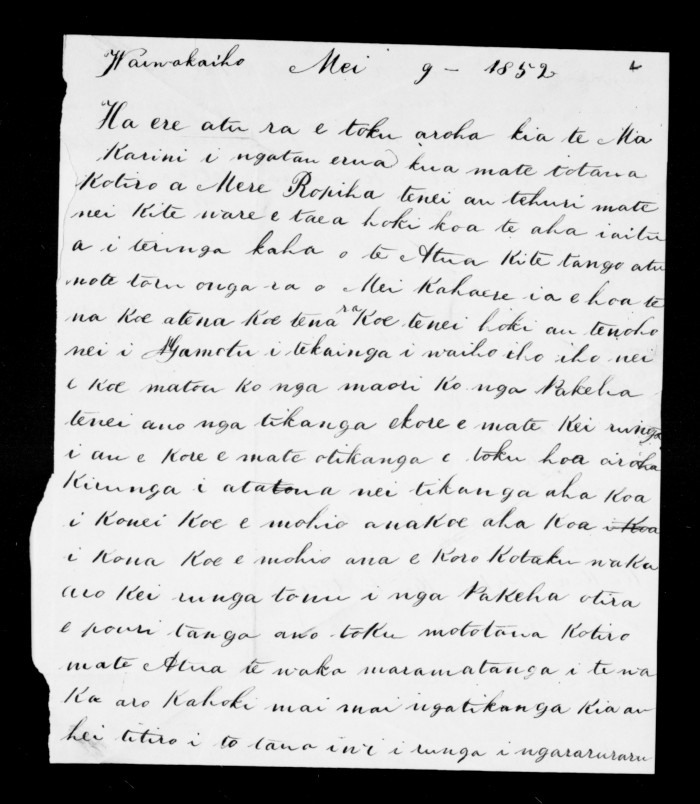 Waiwakaiho Mei 9 - 1852
Haere atu ra e toku aroha kia te Ma
Karini i ngatau erua kua mate totaua
Kotiro a Mere Ropiha tenei au tehuri mate
nei Kite ware e taea hoki koa te aha iaitu
a i teringa kaha o te Atua Kite tango atu
mote toru onga ra o Mei Kahaere ia e hoa te
na Koe atena Koe tena ra Koe tenei hoki au tenoho
nei i Ngamotu i tekainga i waiho iho iho nei
e Koe matou ko nga maori Ko nga Pakeha
tenei ano nga tikanga ekore e mate Kei runga
i au e Kore e mate otikanga e toku hoa aroha
Kirunga i atatoua nei tikanga aha Koa
i Konei Koe e mohio anaKoe aha Koa i Koa
i Kona Koe e mohio ana e Koro Kotaku waka
aro Kei runga tonu i nga Pakeha otira
e pouri tanga ano toku mototaua Kotiro
mate Atua te waka maramatanga i te wa
Ka aro Kahoki mai mai ngatikanga Kia au
hei titiro i to taua ini i runga i ngararuraru